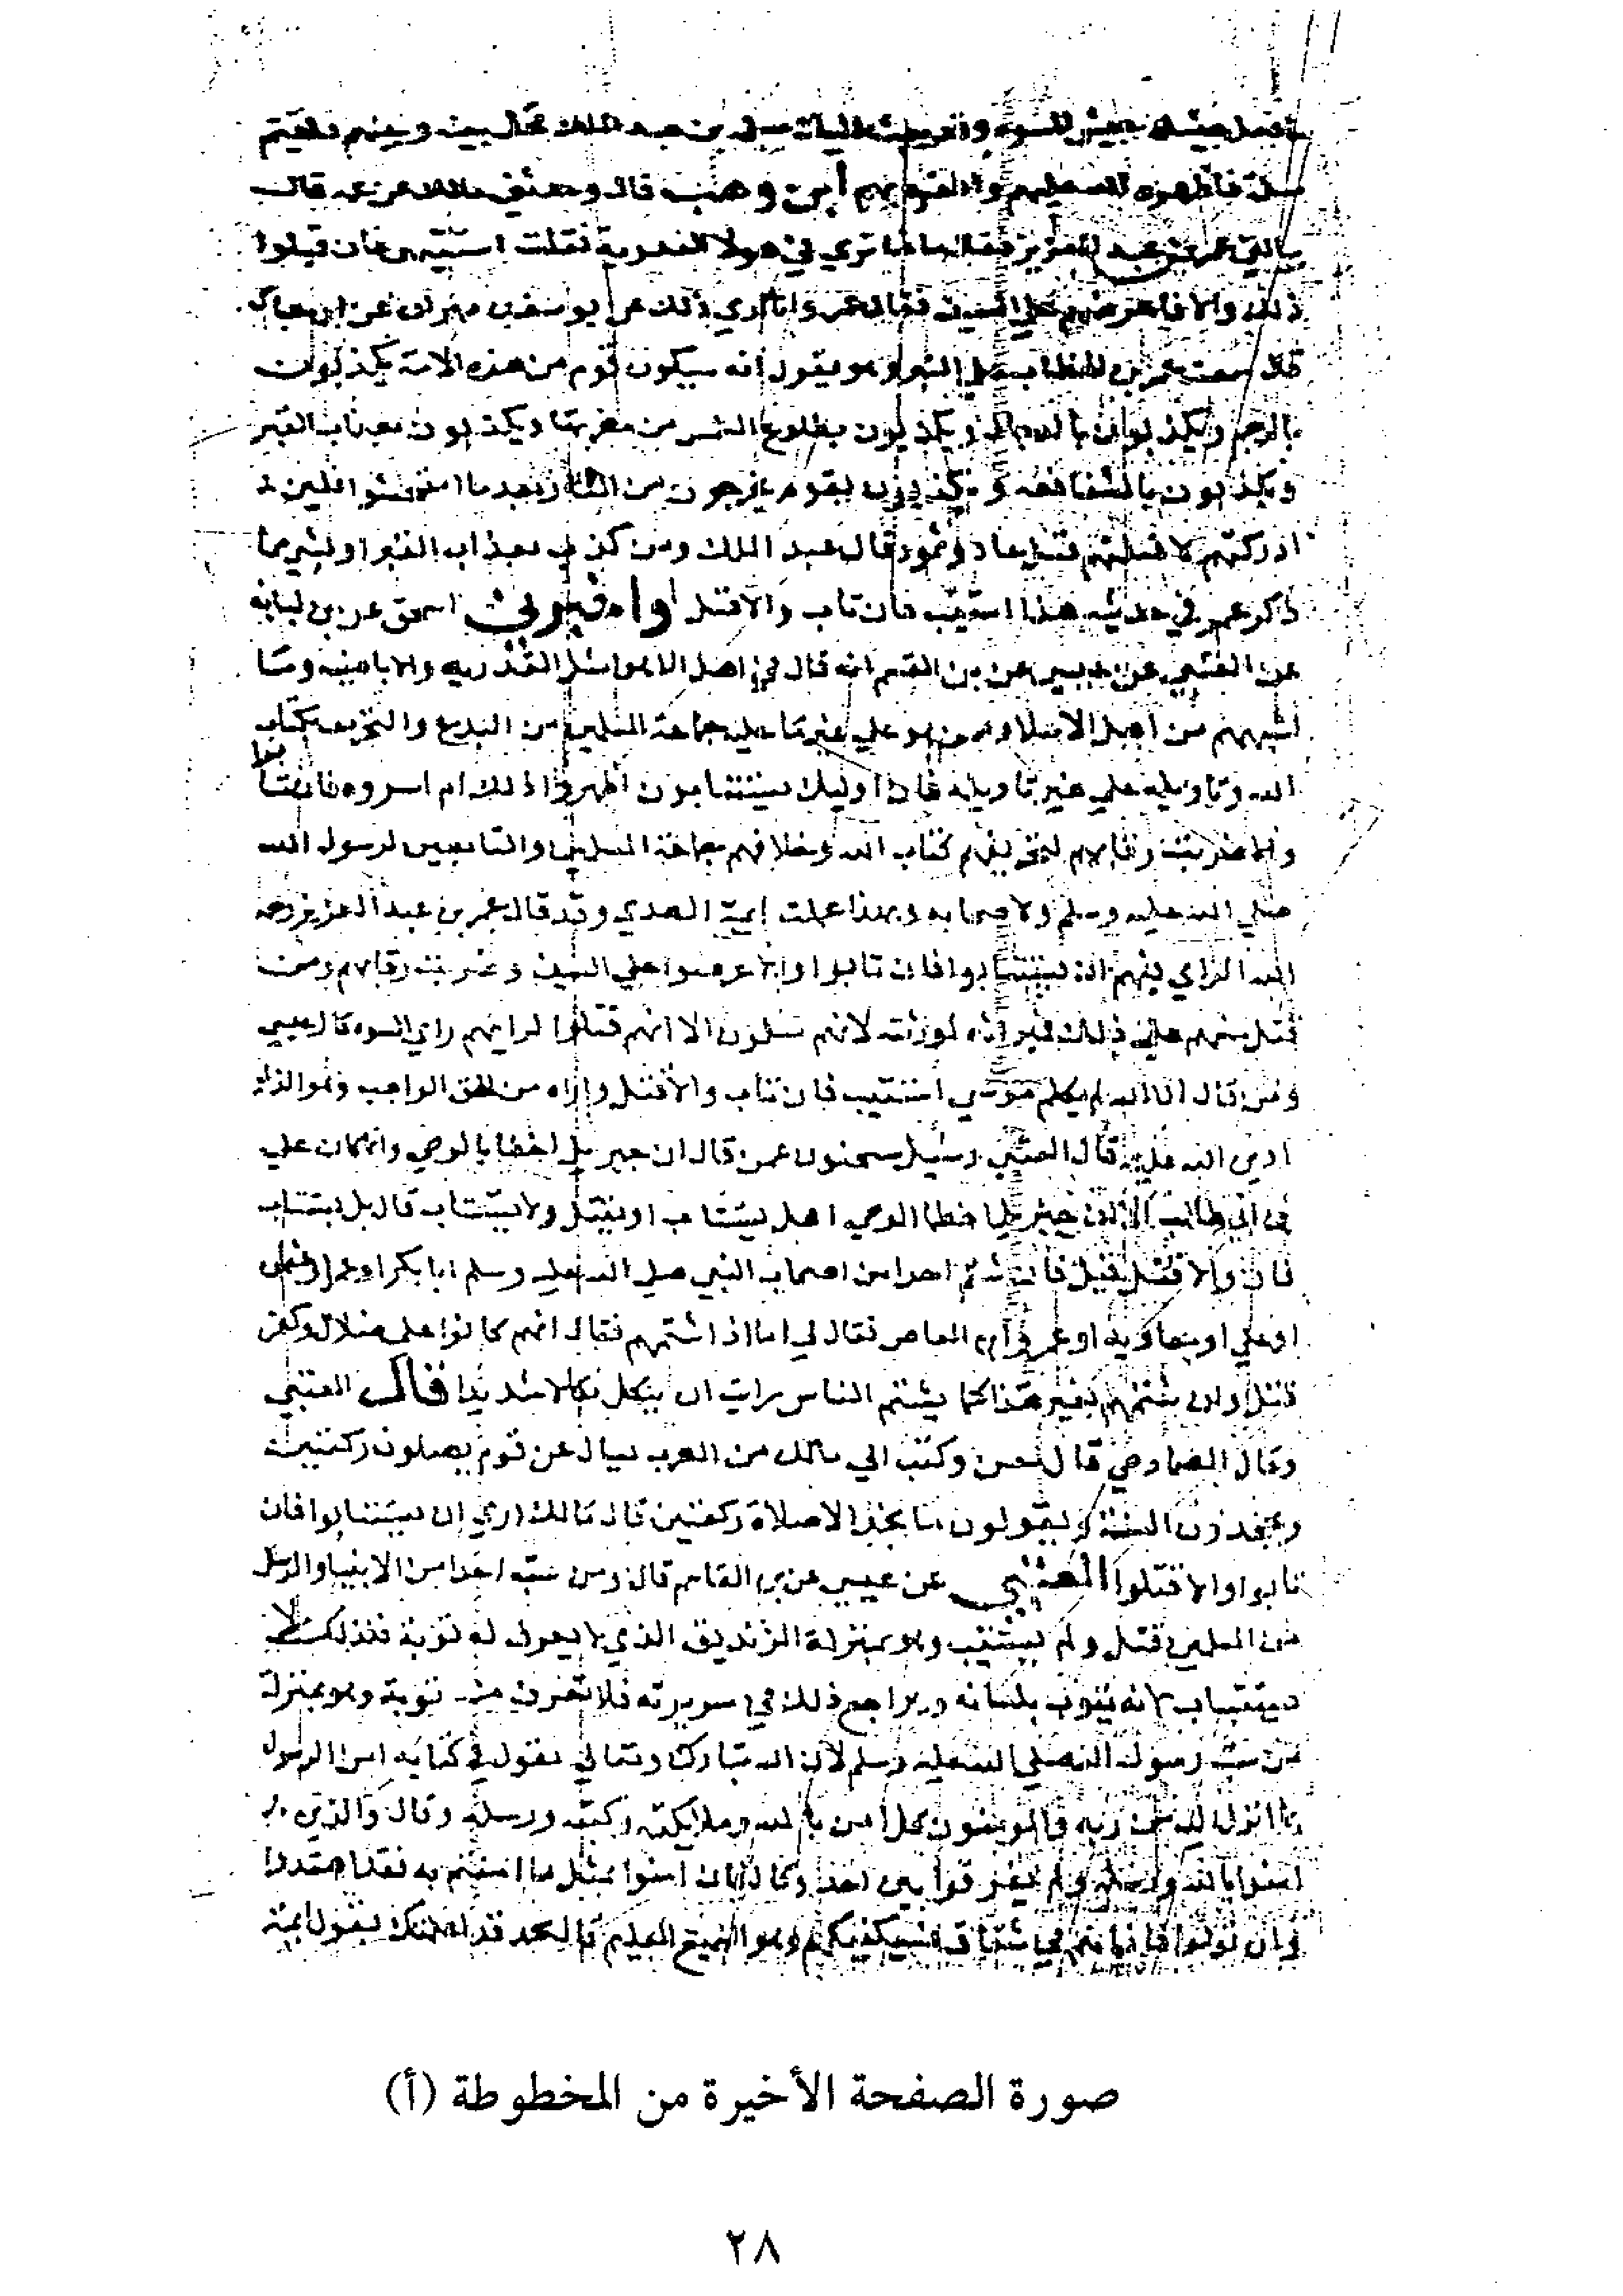 فاظهره الله عليهم ابن وهب قال و عمه قال
عمر بن عبد العزيز فقال ما ترى في هولا القدرية فقلت استتبهم فان قبلوا
ذلك والا فاعرضهم على السيف فقال عمر وانا اري ذلك يوسف بن مهران عن ابن عباس
قال سمعت عمر بن الخطاب على المنبر وهو يقول انه سيكون قوم من هذه الامة يكذبون
بالرجم ويكذبون بالدجال ويكذبون بطلوع الشمس من مغربها ويكذبون بعذاب القبر
ويكذبون بالشفاعه ويكذبون بقوم يخرجون من النار بعد ما امتحشوا فلين
ادركتهم لاقتلنهم قتل عاد وثمود قال عبد الملك ومن كذب بعذاب القبر او بشي مما
ذكر عمر في حديثه هذا استتيب فان تاب والا قتل واخبرني اسحق عن بن لبابه
عن العتبي عن عيسى عن بن القسم انه قال في اهل الاهوا مثل القدريه والاباضيه وما
اشبههم من اهل الاسلام ممن هو على غير ما عليه جماعة المسلمين من البدع والتحريف لكتاب
الله وتاويله على غير تاويله فان اوليك يستتابون اظهروا ذلك ام اسروه فان تابوا
والا ضربت رقابهم لتحريفهم كتاب الله وخلافهم جماعة المسلمين والتابعين لرسول الله
صلى الله عليه وسلم ولاصحابه وبهذا عملت ايمة الهدي وقد قال عمر بن عبد العزيز رحمه
الله الراي فيهم ان يستتابوا فان تابوا والا عرضوا على السيف وضربت رقابهم ومن
قتل منهم على ذلك فميراثه لورثته لانهم مسلمون الا انهم قتلوا لرايهم راي السوء قال عيسي
ومن قال ان الله لم يكلم موسى استتيب فان تاب والا قتل واراه من الحق الواجب وهو الذي
ادين الله عليه قال العتبي وسئل سحنون عمن قال ان جبريل اخطا بالوحي وانما كان علي
بن ابي طالب الا ان جبريل اخطا الوحي هل يستتاب او يقتل ولا يستتاب قال بل يستتاب
فان والا قتل قيل فان شتم احدا من اصحاب النبي صلى الله عليه وسلم ابا بكر او عمر او عثمن
او علي او معاوية او عمرو بن العاص فقال لي اما اذا شتمهم فقال انهم كانوا على ضلال وكفر
قتل وان شتمهم بغير هذا كما يشتم الناس رايت ان ينكل نكالا شديدا قال العتبي
وقال الصمادحي قال معن وكتب الي مالك من العرب يسال عن قوم يصلون ركعتين
ويجحدون السنة ويقولون ما نجد الا صلاة ركعتين قال مالك اري ان يستتابوا فان
تابوا والا قتلوا العتبي عن عيسى عن بن القاسم قال ومن سب احدا من الانبيا والرسل
من المسلمين قتل ولم يستتب وهو بمنزلة الزنديق الذي لا يعرف له توبة فلذلك لا
يستتاب لانه يتوب بلسانه ويراجع ذلك في سريرته فلا تعرف منه توبة وهو بمنزلة
من سب رسول الله صلى الله عليه وسلم لان الله تبارك وتعالى يقول في كتابه امن الرسول
بما انزل اليه من ربه والمومنون كل امن بالله وملايكته وكتبه ورسله وقال والذين
امنوا بالله ورسله ولم يفرقوا بين احد وقال فان امنوا بمثل ما امنتم به فقد اهتدوا
وان تولوا فانما هم في شقاق فسيكفيكهم الله وهو السميع العليم قال محمد قد اعلمتك بقول ايمة
صورة الصفحة الأخيرة من المخطوطة (أ)
٢٨